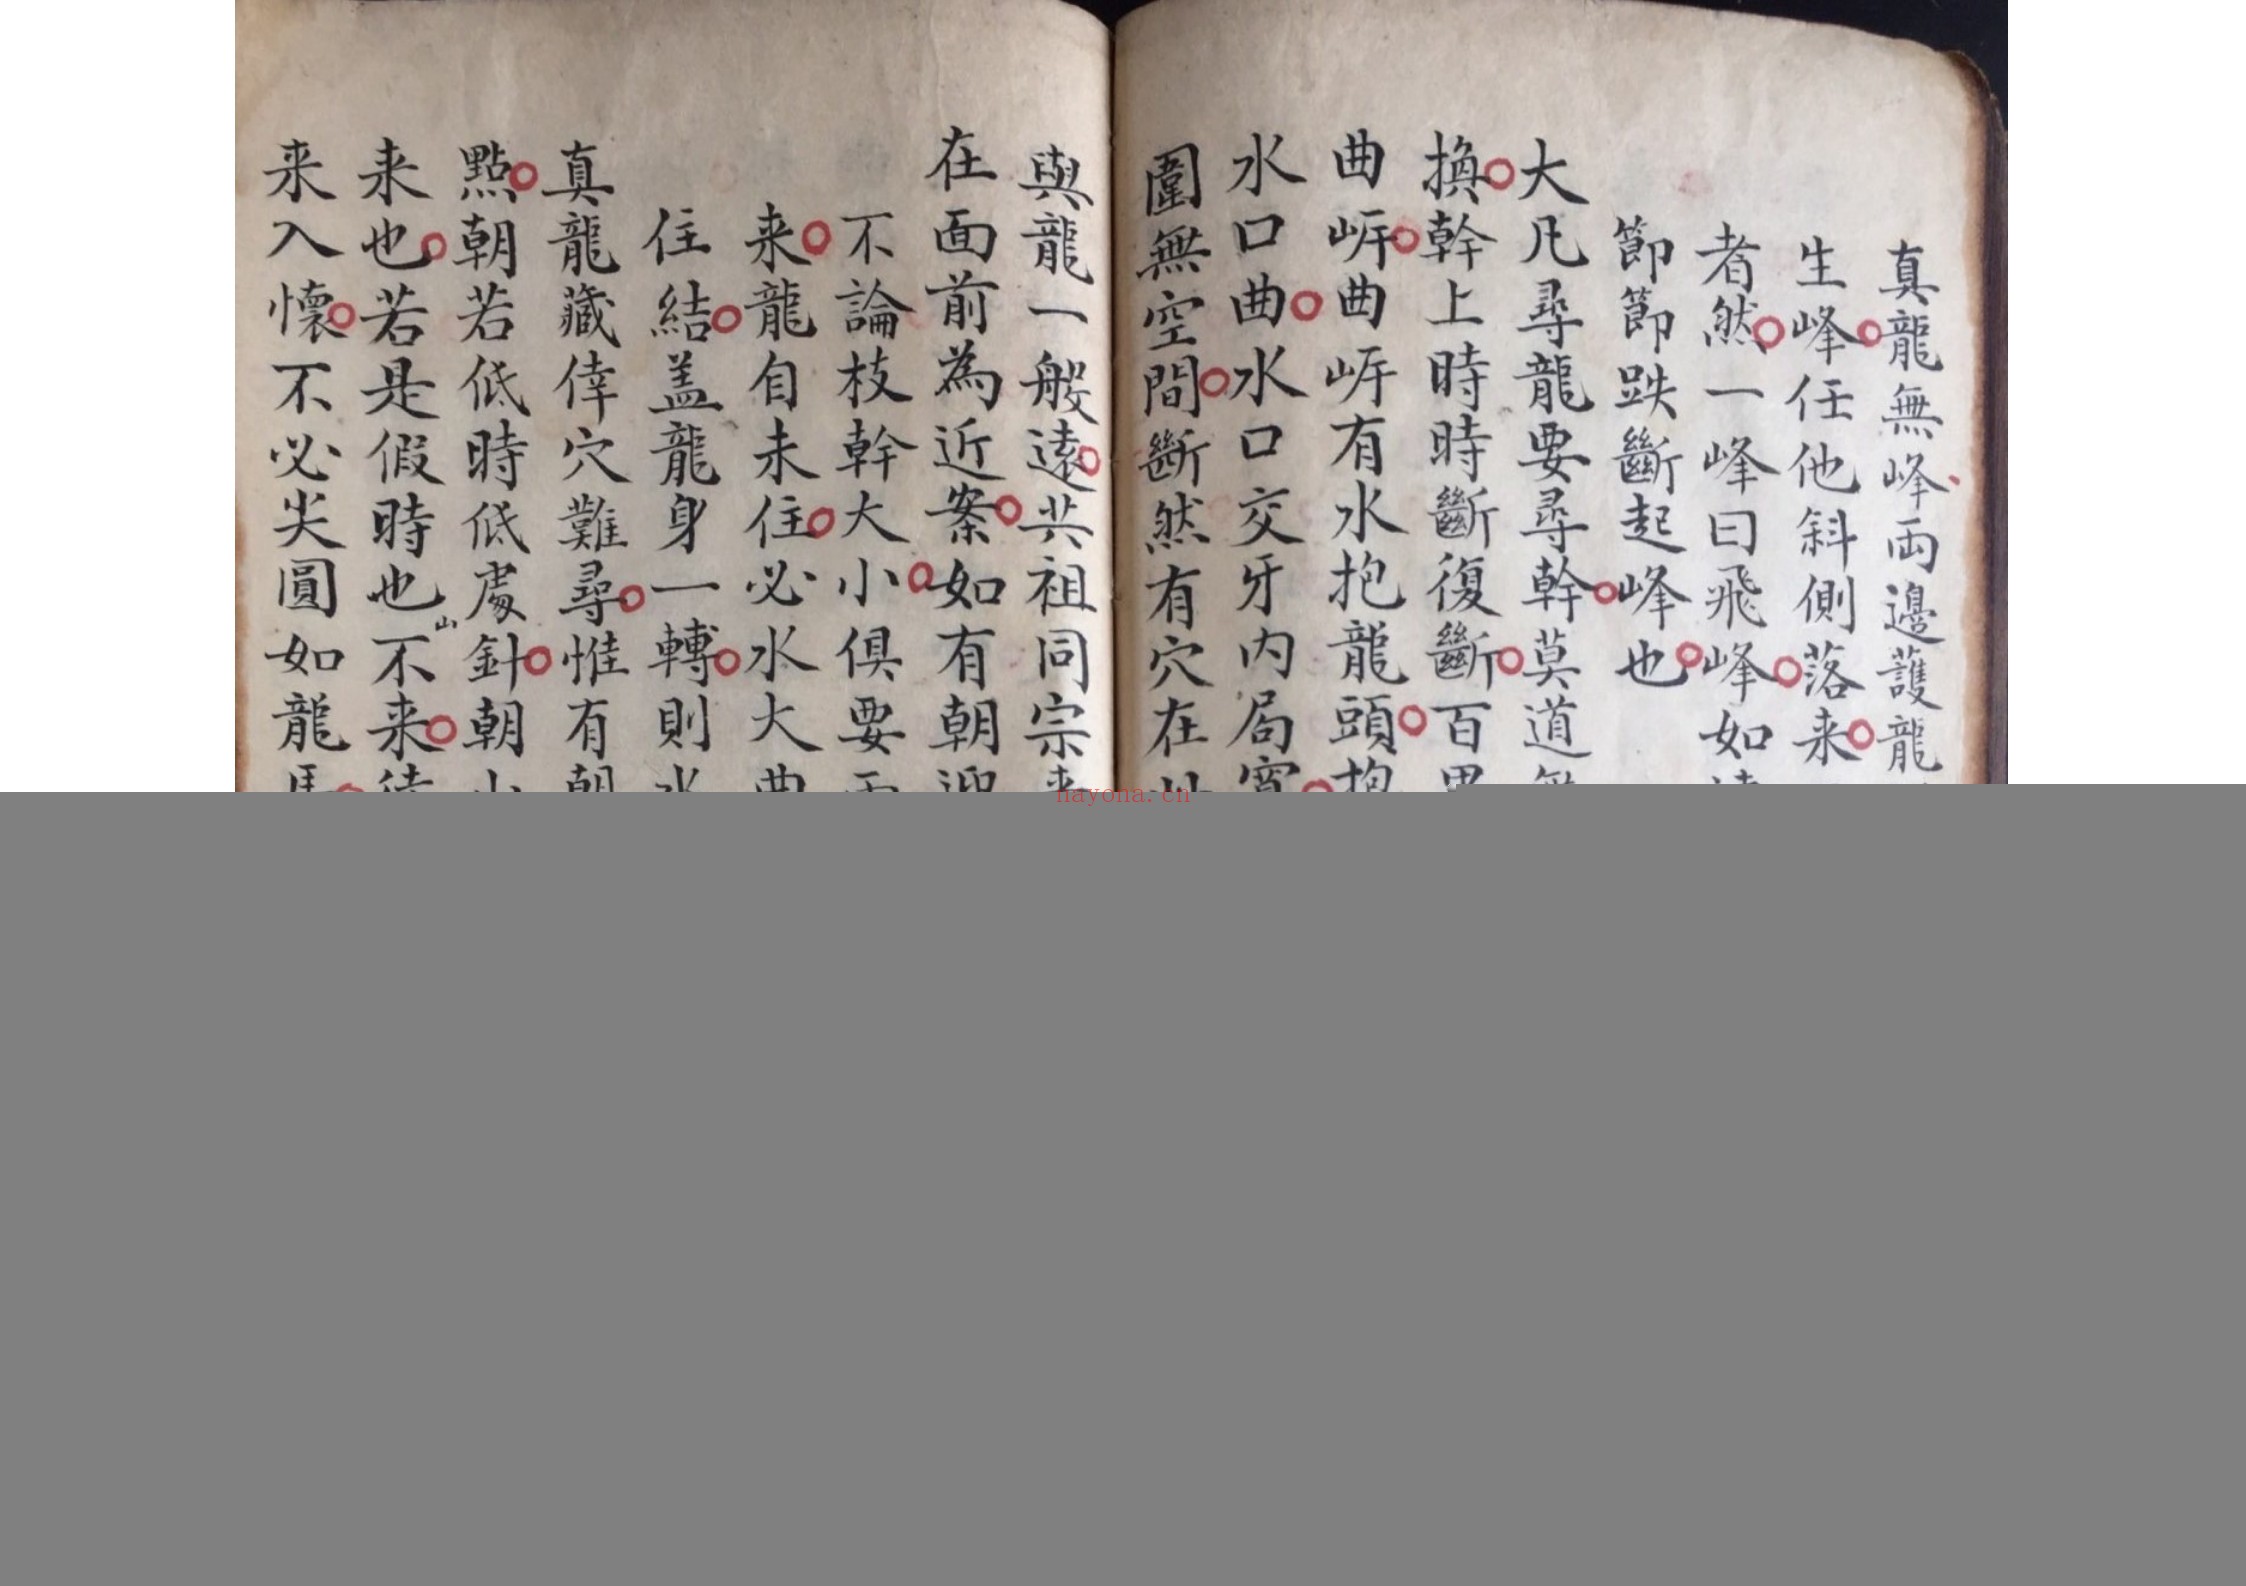 真龍無峰兩邊護龍
生峰任他斜側落来
者然一峰曰飛峰如
節節跌斷起峰也
大凡尋龍要尋幹莫道
換幹上時時斷復斷百
曲㟁曲㟁有水抱龍頭抱
水口曲水口交牙內局寬
圍無空間斷然有穴在
與龍一般遠共祖同宗来
在面前為近案如有朝迎
不論枝幹大小俱要
来龍自未住必水大曲
住結盖龍身一轉則水
真龍藏倖穴難尋惟有朝
點朝若低時低處針朝山
来也若是假時也不来
来入懷不必尖圓如龍馬
nayona.cn